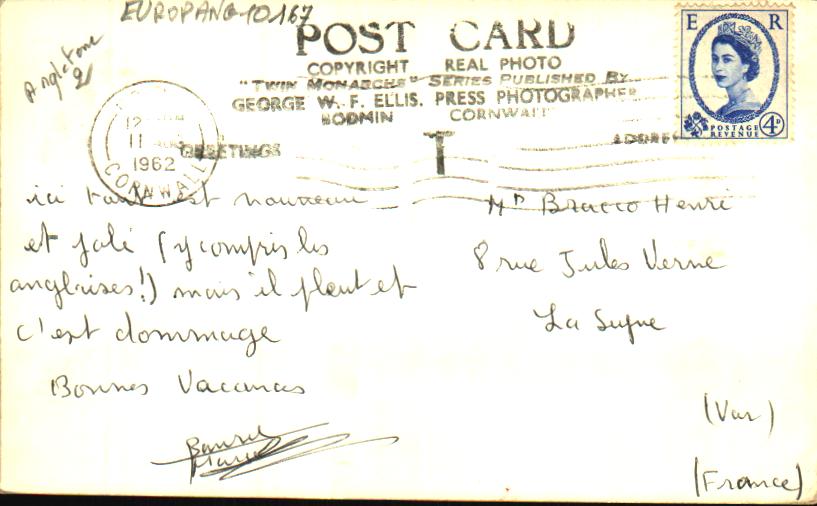 EUROPANG-10167
Angleterre
2
POST CARD
COPYRIGHT REAL PHOTO
"TWIN MONARCHS" SERIES PUBLISHED BY
GEORGE W. F. ELLIS. PRESS PHOTOGRAPHER
BODMIN CORNWALL
GREETINGS
ADDRESS
E R
POSTAGE
REVENUE
4D
12
11
1962
CORNWALL
ici tout est nouveau
et joli (y compris les
anglaises!) mais il pleut et
c'est dommage
Bonnes Vacances
Mr Bracco Henri
8 rue Jules Verne
La Seyne
(Var)
(France)